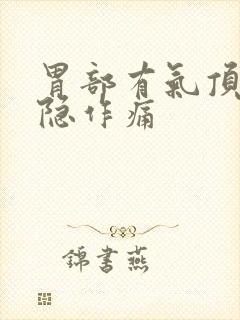 胃部有氣頂
隐作痛
錦書燕